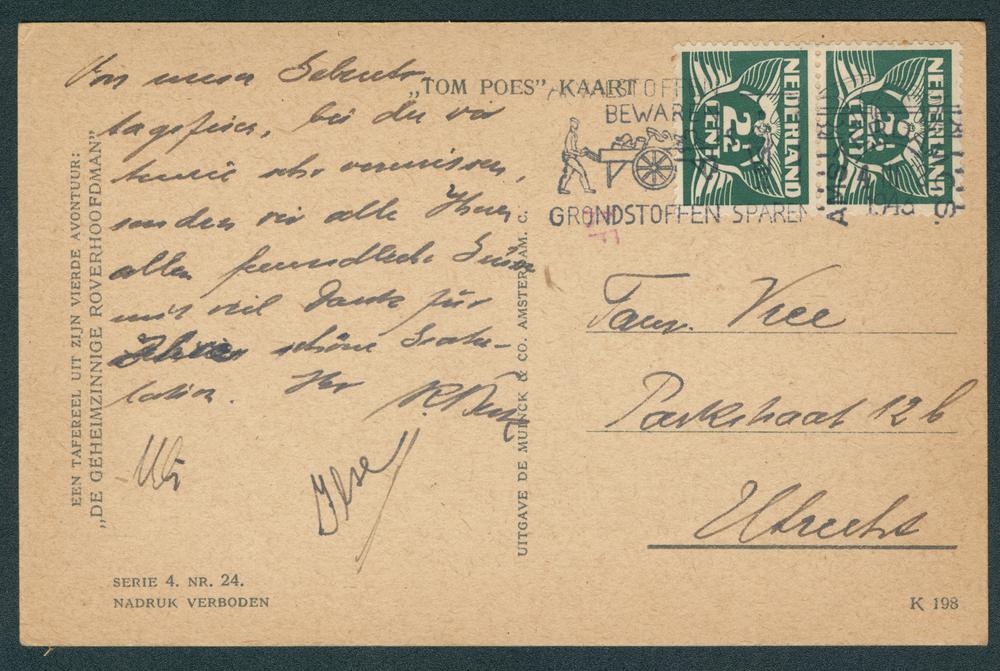 "TOM POES" KAART
Von unser Geburts-
tagsfeier, bei der wir
Sie sehr vermissen,
senden wir alle Ihnen
allen freundliche Grüsse
mit viel Dank für
schöne Gratu-
lation. Ihr
Ilse
EEN TAFEREEL UIT ZIJN VIERDE AVONTUUR:
„DE GEHEIMZINNIGE ROVERHOOFDMAN"
UITGAVE DE MUINCK & CO. AMSTERDAM. C.
SERIE 4. NR. 24.
NADRUK VERBODEN
BEWAREN
GRONDSTOFFEN SPAREN
NEDERLAND
2½
CENT
NEDERLAND
2½
CENT
Fam. Vree
Parkstraat 12b
Utrecht
K 198